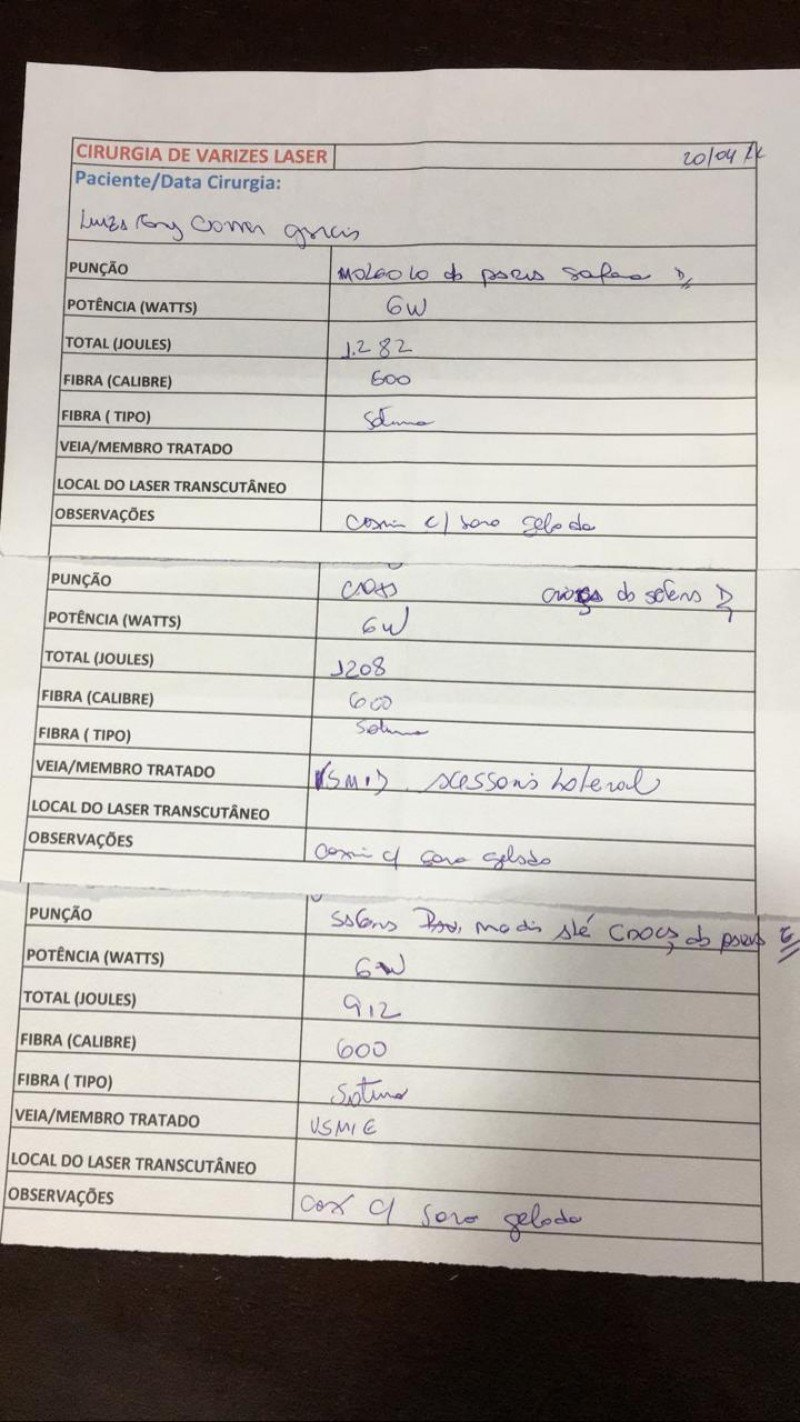 CIRURGIA DE VARIZES LASER 20/04
Paciente/Data Cirurgia:
Luiza
PUNÇÃO do safena D
POTÊNCIA (WATTS) 6W
TOTAL (JOULES) 1.282
FIBRA (CALIBRE) 600
FIBRA ( TIPO)
VEIA/MEMBRO TRATADO
LOCAL DO LASER TRANSCUTÂNEO
OBSERVAÇÕES Coxim c/ soro gelado
PUNÇÃO coxa do safena D
POTÊNCIA (WATTS) 6W
TOTAL (JOULES) 1208
FIBRA (CALIBRE) 600
FIBRA ( TIPO)
VEIA/MEMBRO TRATADO VSMD acessoria lateral
LOCAL DO LASER TRANSCUTÂNEO
OBSERVAÇÕES Coxim c/ soro gelado
PUNÇÃO safena até do E
POTÊNCIA (WATTS) 6W
TOTAL (JOULES) 912
FIBRA (CALIBRE) 600
FIBRA ( TIPO)
VEIA/MEMBRO TRATADO VSMIE
LOCAL DO LASER TRANSCUTÂNEO
OBSERVAÇÕES Cox c/ soro gelado